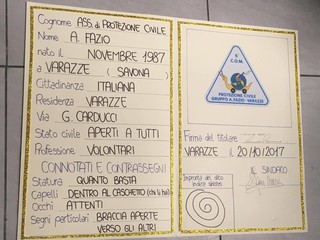 Cognome ASS. di PROTEZIONE CIVILE
Nome A. FAZIO
nato il NOVEMBRE 1987
a VARAZZE (SAVONA)
Cittadinanza ITALIANA
Residenza VARAZZE
Via G. CARDUCCI
Stato civile APERTI A TUTTI
Professione VOLONTARI
CONNOTATI E CONTRASSEGNI
Statura QUANTO BASTA
Capelli DENTRO AL CASCHETTO (chi li ha)
Occhi ATTENTI
Segni particolari BRACCIA APERTE
VERSO GLI ALTRI
C.O.M.
PROTEZIONE CIVILE
GRUPPO A. FAZIO - VARAZZE
Firma del titolare
VARAZZE il 20/10/2017
Impronta del dito
indice sinistro
IL SINDACO